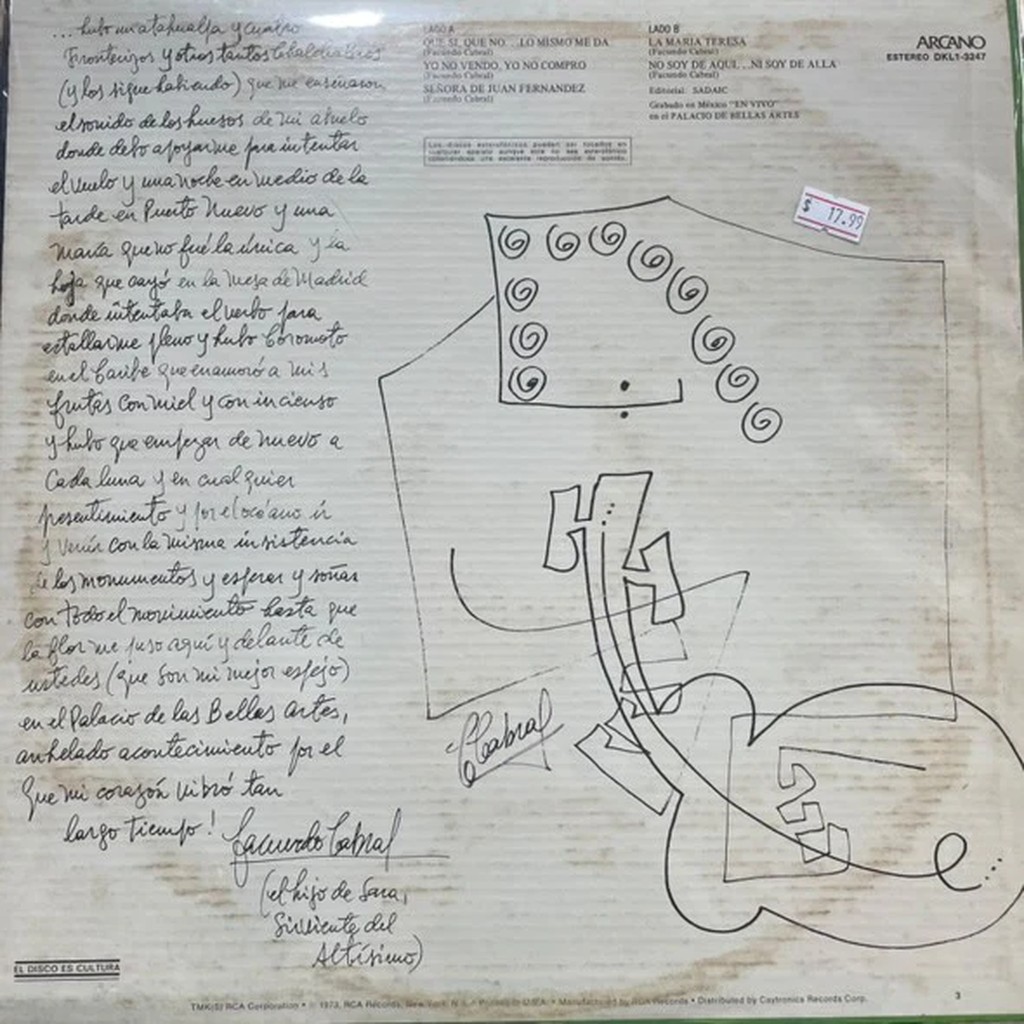 ...hubo un atahualpa y cuatro
Fronterizos y otros tantos Chalchaleros
(y los sigue habiendo) que me enseñaron
el sonido de los huesos de mi abuelo
donde debo apoyarme para intentar
el vuelo y una noche en medio de la
tarde en Puerto Nuevo y una
María que no fué la única y la
hoja que cayó en la mesa de Madrid
donde intentaba el verbo para
estallarme pleno y hubo Coromoto
en el Caribe que enamoró a mis
frutas con miel y con incienso
y hubo que empezar de nuevo a
Cada luna y en cualquier
presentimiento y por el océano ir
y venir con la misma insistencia
de los monumentos y esperar y soñar
con todo el movimiento hasta que
la flor me puso aquí y delante de
ustedes (que son mi mejor espejo)
en el Palacio de las Bellas Artes,
anhelado acontecimiento por el
que mi corazón vibró tan
largo tiempo!
Facundo Cabral
(el hijo de Sara,
Sirviente del
Altísimo)
EL DISCO ES CULTURA
LADO A
QUE SI, QUE NO...LO MISMO ME DA
(Facundo Cabral)
YO NO VENDO, YO NO COMPRO
(Facundo Cabral)
SEÑORA DE JUAN FERNANDEZ
(Facundo Cabral)
Los discos estereofónicos pueden ser tocados en
cualquier aparato aunque este no sea estereofónico
obteniéndose una excelente reproducción de sonido.
LADO B
LA MARIA TERESA
(Facundo Cabral)
NO SOY DE AQUI...NI SOY DE ALLA
(Facundo Cabral)
Editorial: SADAIC
Grabado en México "EN VIVO"
en el PALACIO DE BELLAS ARTES
ARCANO
ESTEREO DKL1-3247
$ 17.99
FCabral
TMK(S) RCA Corporation • ℗ 1973, RCA Records, New York, N.Y. • Printed in U.S.A. • Manufactured by RCA Records • Distributed by Caytronics Records Corp.
3